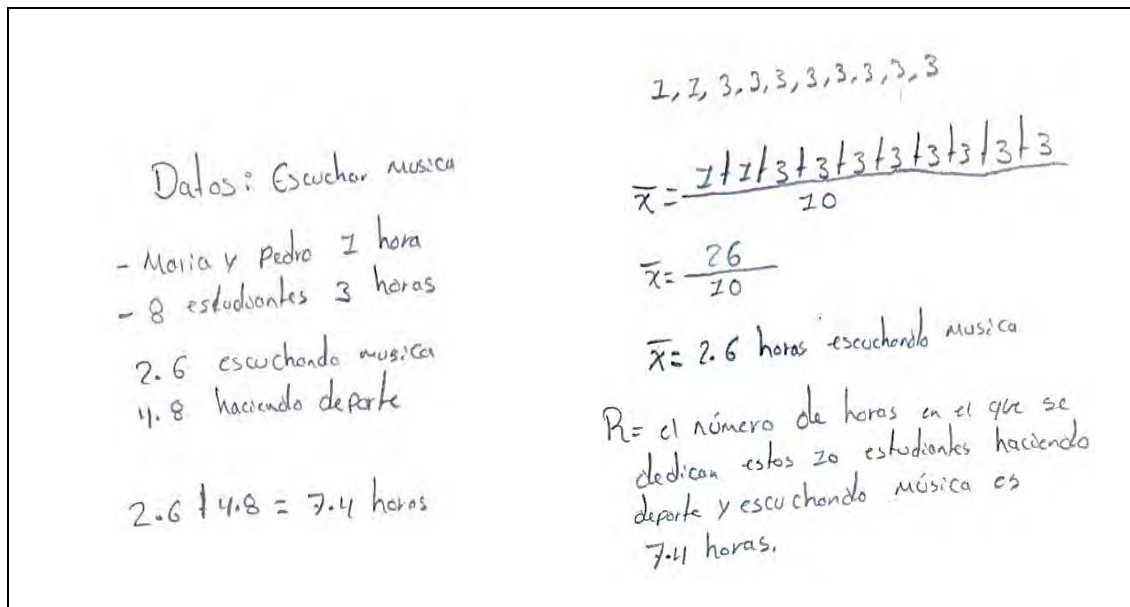 Datos: Escuchar musica
- Maria y Pedro 1 hora
- 8 estudiantes 3 horas
2.6 escuchando musica
4.8 haciendo deporte
2.6 + 4.8 = 7.4 horas
1, 1, 3, 3, 3, 3, 3, 3, 3, 3
x̄ = 1+1+3+3+3+3+3+3+3+3
10
x̄ = 26
10
x̄ = 2.6 horas escuchando musica
R= el número de horas en el que se
dedican estos 10 estudiantes haciendo
deporte y escuchando música es
7.4 horas.